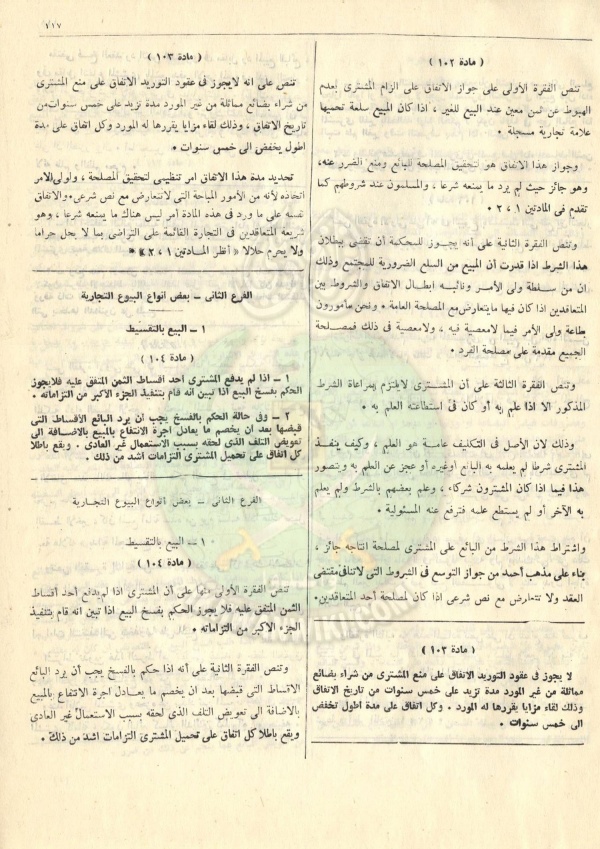 ١١٧
( مادة ١٠٢ )
تنص الفقرة الأولى على جواز الاتفاق على الزام المشترى بعدم
الهبوط عن ثمن معين عند البيع للغير ، اذا كان المبيع سلعة تحميها
علامة تجارية مسجلة .
وجواز هذا الاتفاق هو لتحقيق المصلحة للبائع ومنع الضرر عنه،
وهو جائز حيث لم يرد ما يمنعه شرعا ، والمسلمون عند شروطهم كما
تقدم فى المادتين ١ ، ٢ .
وتنص الفقرة الثانية على أنه يجوز للمحكمة أن تقضى ببطلان
هذا الشرط اذا قدرت أن المبيع من السلع الضرورية للمجتمع وذلك
ان من سلطة ولى الأمر ونائبه ابطال الاتفاق والشروط بين
المتعاقدين اذا كان فيها ما يتعارض مع المصلحة العامة . ونحن مأمورون
بطاعة ولى الأمر فيما لا معصية فيه ، ولا معصية فى ذلك فمصلحة
الجميع مقدمة على مصلحة الفرد .
وتنص الفقرة الثالثة على أن المشترى لا يلتزم بمراعاة الشرط
المذكور الا اذا علم به أو كان فى استطاعته العلم به .
وذلك لان الأصل فى التكليف عامة هو العلم ، وكيف ينفذ
المشترى شرطا لم يعلمه به البائع أو غيره أو عجز عن العلم به ويتصور
هذا فيما اذا كان المشترون شركاء ، وعلم بعضهم بالشرط ولم يعلم
به الآخر أو لم يستطع علمه فترفع عنه المسئولية .
واشتراط هذا الشرط من البائع على المشترى لمصلحة انتاجه جائز ،
بناء على مذهب أحمد من جواز التوسع فى الشروط التى لا تنافى مقتضى
العقد ولا تتعارض مع نص شرعى اذا كان لمصلحة أحد المتعاقدين.
( مادة ١٠٣ )
لا يجوز فى عقود التوريد الاتفاق على منع المشترى من شراء بضائع
مماثلة من غير المورد مدة تزيد على خمس سنوات من تاريخ الاتفاق
وذلك لقاء مزايا يقررها له المورد . وكل اتفاق على مدة أطول تخفض
الى خمس سنوات .
( مادة ١٠٣ )
تنص على انه لا يجوز فى عقود التوريد الاتفاق على منع المشترى
من شراء بضائع مماثلة من غير المورد مدة تزيد على خمس سنوات من
تاريخ الاتفاق ، وذلك لقاء مزايا يقررها له المورد وكل اتفاق على مدة
اطول يخفض الى خمس سنوات .
تحديد مدة هذا الاتفاق امر تنظيمى لتحقيق المصلحة ، ولولى الامر
اتخاذه لأنه من الأمور المباحة التى لا تتعارض مع نص شرعى والاتفاق
نفسه على ما ورد فى هذه المادة أمر ليس هناك ما يمنعه شرعا ، وهو
شريعة المتعاقدين فى التجارة القائمة على التراضى بما لا يحل حراما
ولا يحرم حلالا « أنظر المادتين ١ ، ٢ » .
الفرع الثانى – بعض انواع البيوع التجارية
١ – البيع بالتقسيط
( مادة ١٠٤ )
١ – اذا لم يدفع المشترى أحد أقساط الثمن المتفق عليه فلا يجوز
الحكم بفسخ البيع اذا تبين انه قام بتنفيذ الجزء الاكبر من التزاماته .
٢ – وفى حالة الحكم بالفسخ يجب ان يرد البائع الأقساط التى
قبضها بعد ان يخصم ما يعادل اجرة الانتفاع بالمبيع بالاضافة الى
تعويض التلف الذى لحقه بسبب الاستعمال غير العادى . ويقع باطلا
كل اتفاق على تحميل المشترى التزامات اشد من ذلك .
الفرع الثانى – بعض انواع البيوع التجارية
١ – البيع بالتقسيط
( مادة ١٠٤ )
تنص الفقرة الأولى منها على أن المشترى اذا لم يدفع أحد أقساط
الثمن المتفق عليه فلا يجوز الحكم بفسخ البيع اذا تبين انه قام بتنفيذ
الجزء الاكبر من التزاماته .
وتنص الفقرة الثانية على أنه اذا حكم بالفسخ يجب أن يرد البائع
الاقساط التى قبضها بعد ان يخصم ما يعادل اجرة الانتفاع بالمبيع
بالاضافة الى تعويض التلف الذى لحقه بسبب الاستعمال غير العادى
ويقع باطلا كل اتفاق على تحميل المشترى التزامات اشد من ذلك .